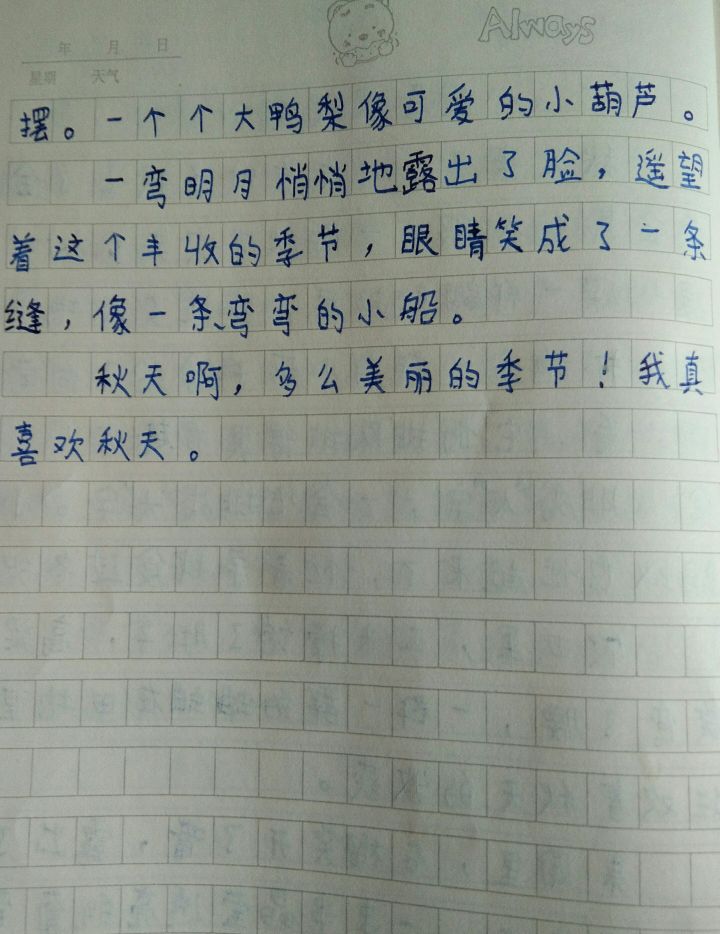 Always
年 月 日
星期 天气
摆。一个个大鸭梨像可爱的小葫芦。
一弯明月悄悄地露出了脸，遥望
着这个丰收的季节，眼睛笑成了一条
缝，像一条弯弯的小船。
秋天啊，多么美丽的季节！我真
喜欢秋天。